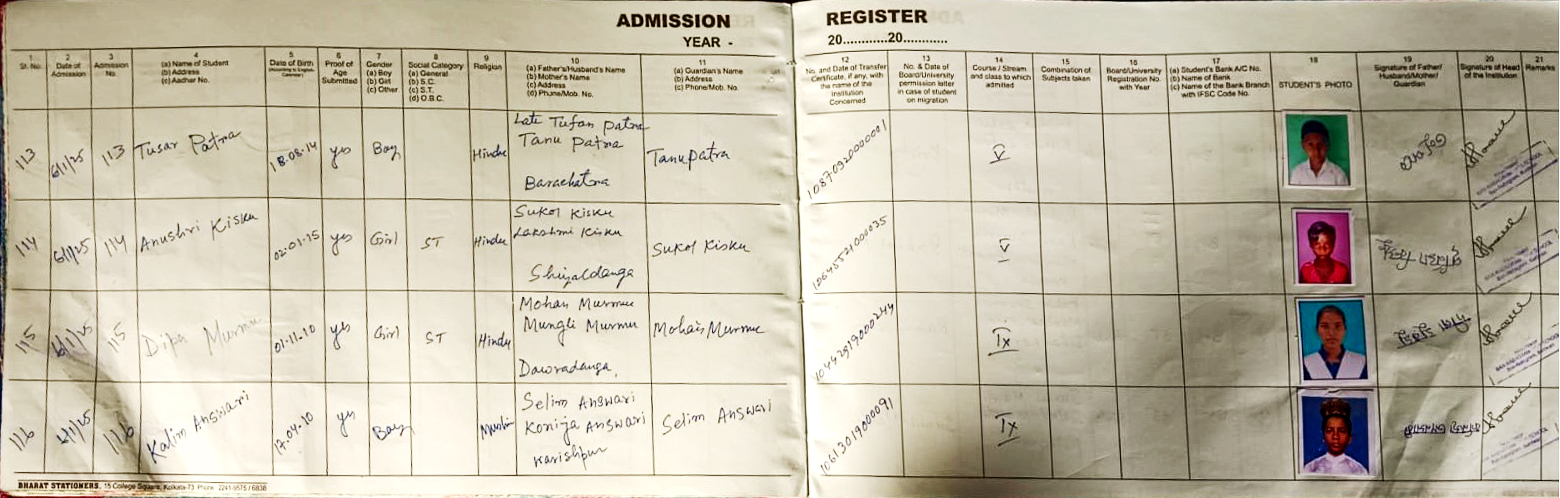 ADMISSION REGISTER
YEAR - 20............20............
1 Sl. No.
2 Date of Admission
3 Admission No.
4 (a) Name of Student (b) Address (c) Aadhar No.
5 Date of Birth (According to English Calendar)
6 Proof of Age Submitted
7 Gender (a) Boy (b) Girl (c) Other
8 Social Category (a) General (b) S.C. (c) S.T. (d) O.B.C.
9 Religion
10 (a) Father's/Husband's Name (b) Mother's Name (c) Address (d) Phone/Mob. No.
11 (a) Guardian's Name (b) Address (c) Phone/Mob. No.
12 No. and Date of Transfer Certificate, if any, with the name of the Institution Concerned
13 No. & Date of Board/University permission letter in case of student on migration
14 Course / Stream and class to which admitted
15 Combination of Subjects taken
16 Board/University Registration No. with Year
17 (a) Student's Bank A/C No. (b) Name of Bank (c) Name of the Bank Branch with IFSC Code No.
18 STUDENT'S PHOTO
19 Signature of Father/ Husband/Mother/ Guardian
20 Signature of Head of the Institution
21 Remarks
113 6/1/25 113 Tusar Patra 18-08-14 yes Boy Hindu Late Tufan Patra Tanu Patra V
Tanu Patra
Barachatra
10870920000001
114 6/1/25 114 Anushri Kisku 02-01-15 yes Girl ST Hindu Sukol Kisku Sukol Kisku V
Lakshmi Kisku
Shiyaldanga
10645521000035
115 6/1/25 115 Dipa Murmu 01-11-10 yes Girl ST Hindu Mohan Murmu Mohan Murmu IX
Mungli Murmu
Dawradanga,
10442919000244
116 6/1/25 116 Kalim Answari 17-04-10 yes Boy Muslim Selim Answari Selim Answari IX
Konija Answari
Karishpur
10613019000091
BHARAT STATIONERS, 15 College Square, Kolkata-73 Phone : 2241-9575 / 6838